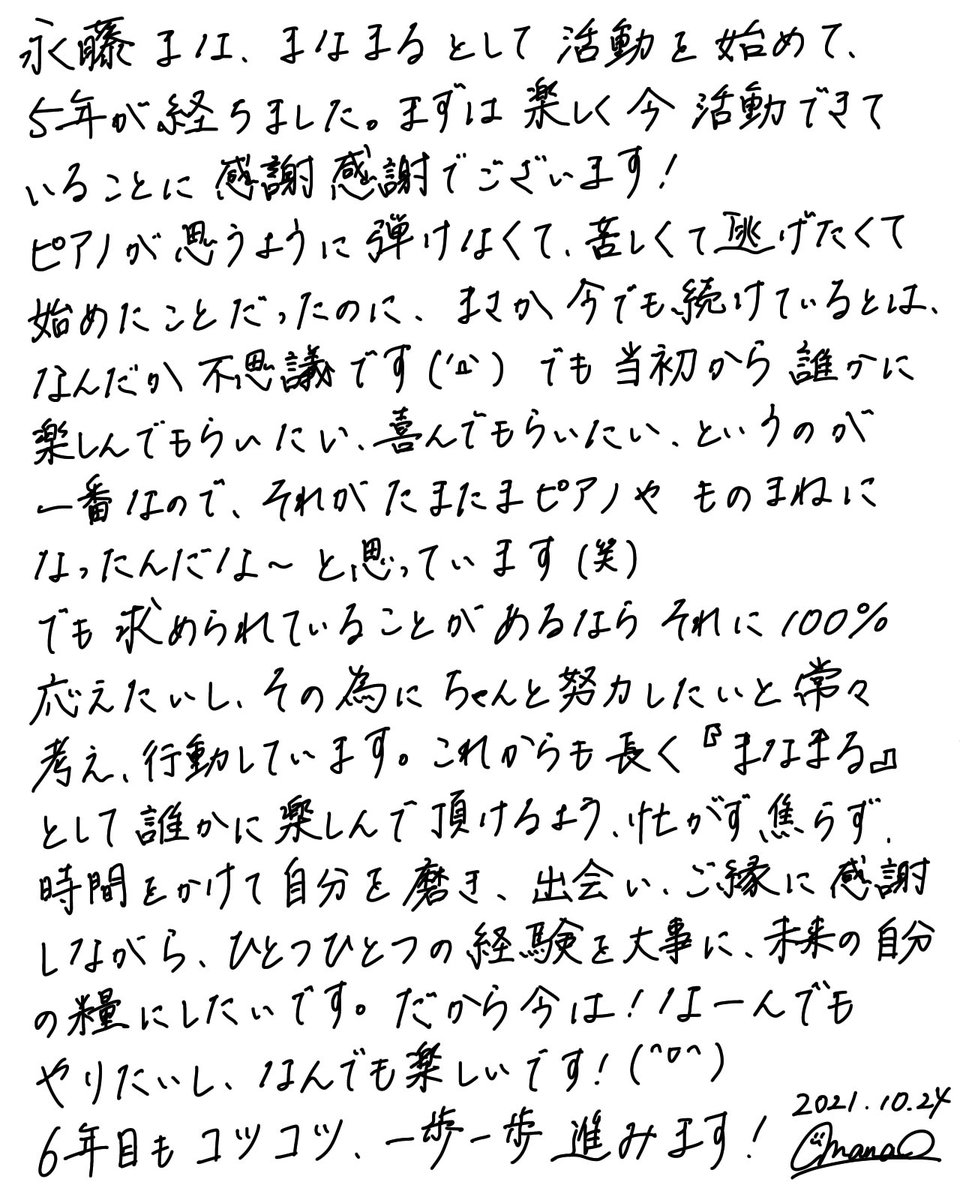 永藤まな、まなまるとして活動を始めて、
5年が経ちました。まずは楽しく今活動できて
いることに感謝感謝でございます！
ピアノが思うように弾けなくて、苦しくて逃げたくて
始めたことだったのに、まさか今でも続けているとは、
なんだか不思議です('д') でも当初から誰かに
楽しんでもらいたい、喜んでもらいたい、というのが
一番なので、それがたまたまピアノやものまねに
なったんだな〜と思っています(笑)
でも求められていることがあるならそれに100%
応えたいし、その為にちゃんと努力したいと常々
考え、行動しています。これからも長く『まなまる』
として誰かに楽しんで頂けるよう、忙がず焦らず、
時間をかけて自分を磨き、出会い、ご縁に感謝
しながら、ひとつひとつの経験を大事に、未来の自分
の糧にしたいです。だから今は！なーんでも
やりたいし、なんでも楽しいです！(^o^)
6年目もコツコツ、一歩一歩進みます！
2021.10.24
mana